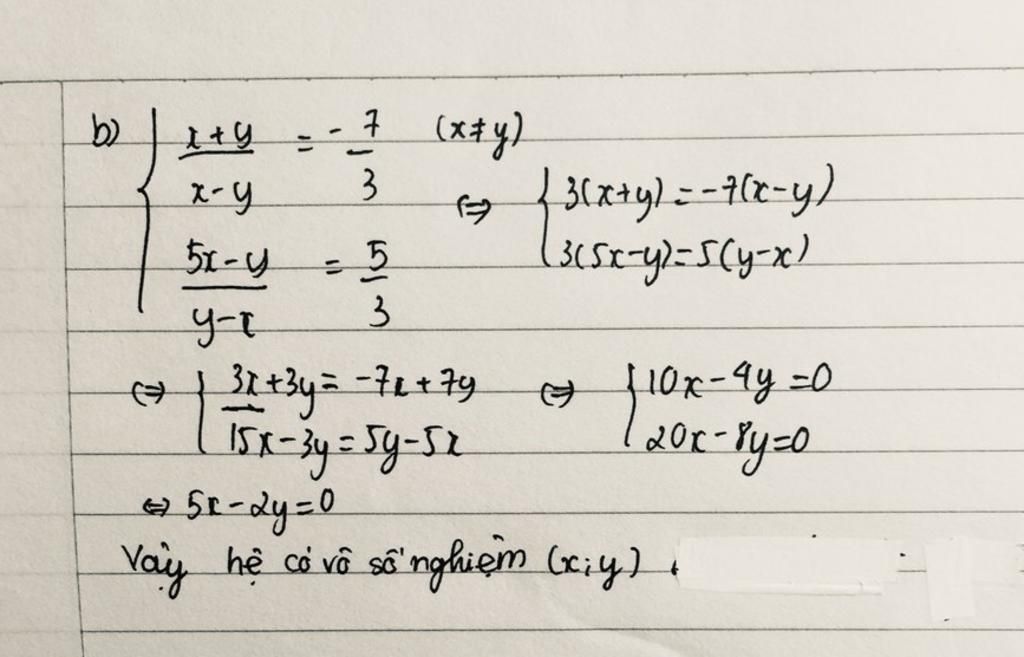 b) { x+y / x-y = -7/3 (x≠y)
5x-y / y-x = 5/3
⇔ { 3(x+y) = -7(x-y)
3(5x-y) = 5(y-x)
⇔ { 3x+3y = -7x+7y
15x-3y = 5y-5x
⇔ { 10x-4y = 0
20x-8y = 0
⇔ 5x-2y = 0
Vậy hệ có vô số nghiệm (x;y).